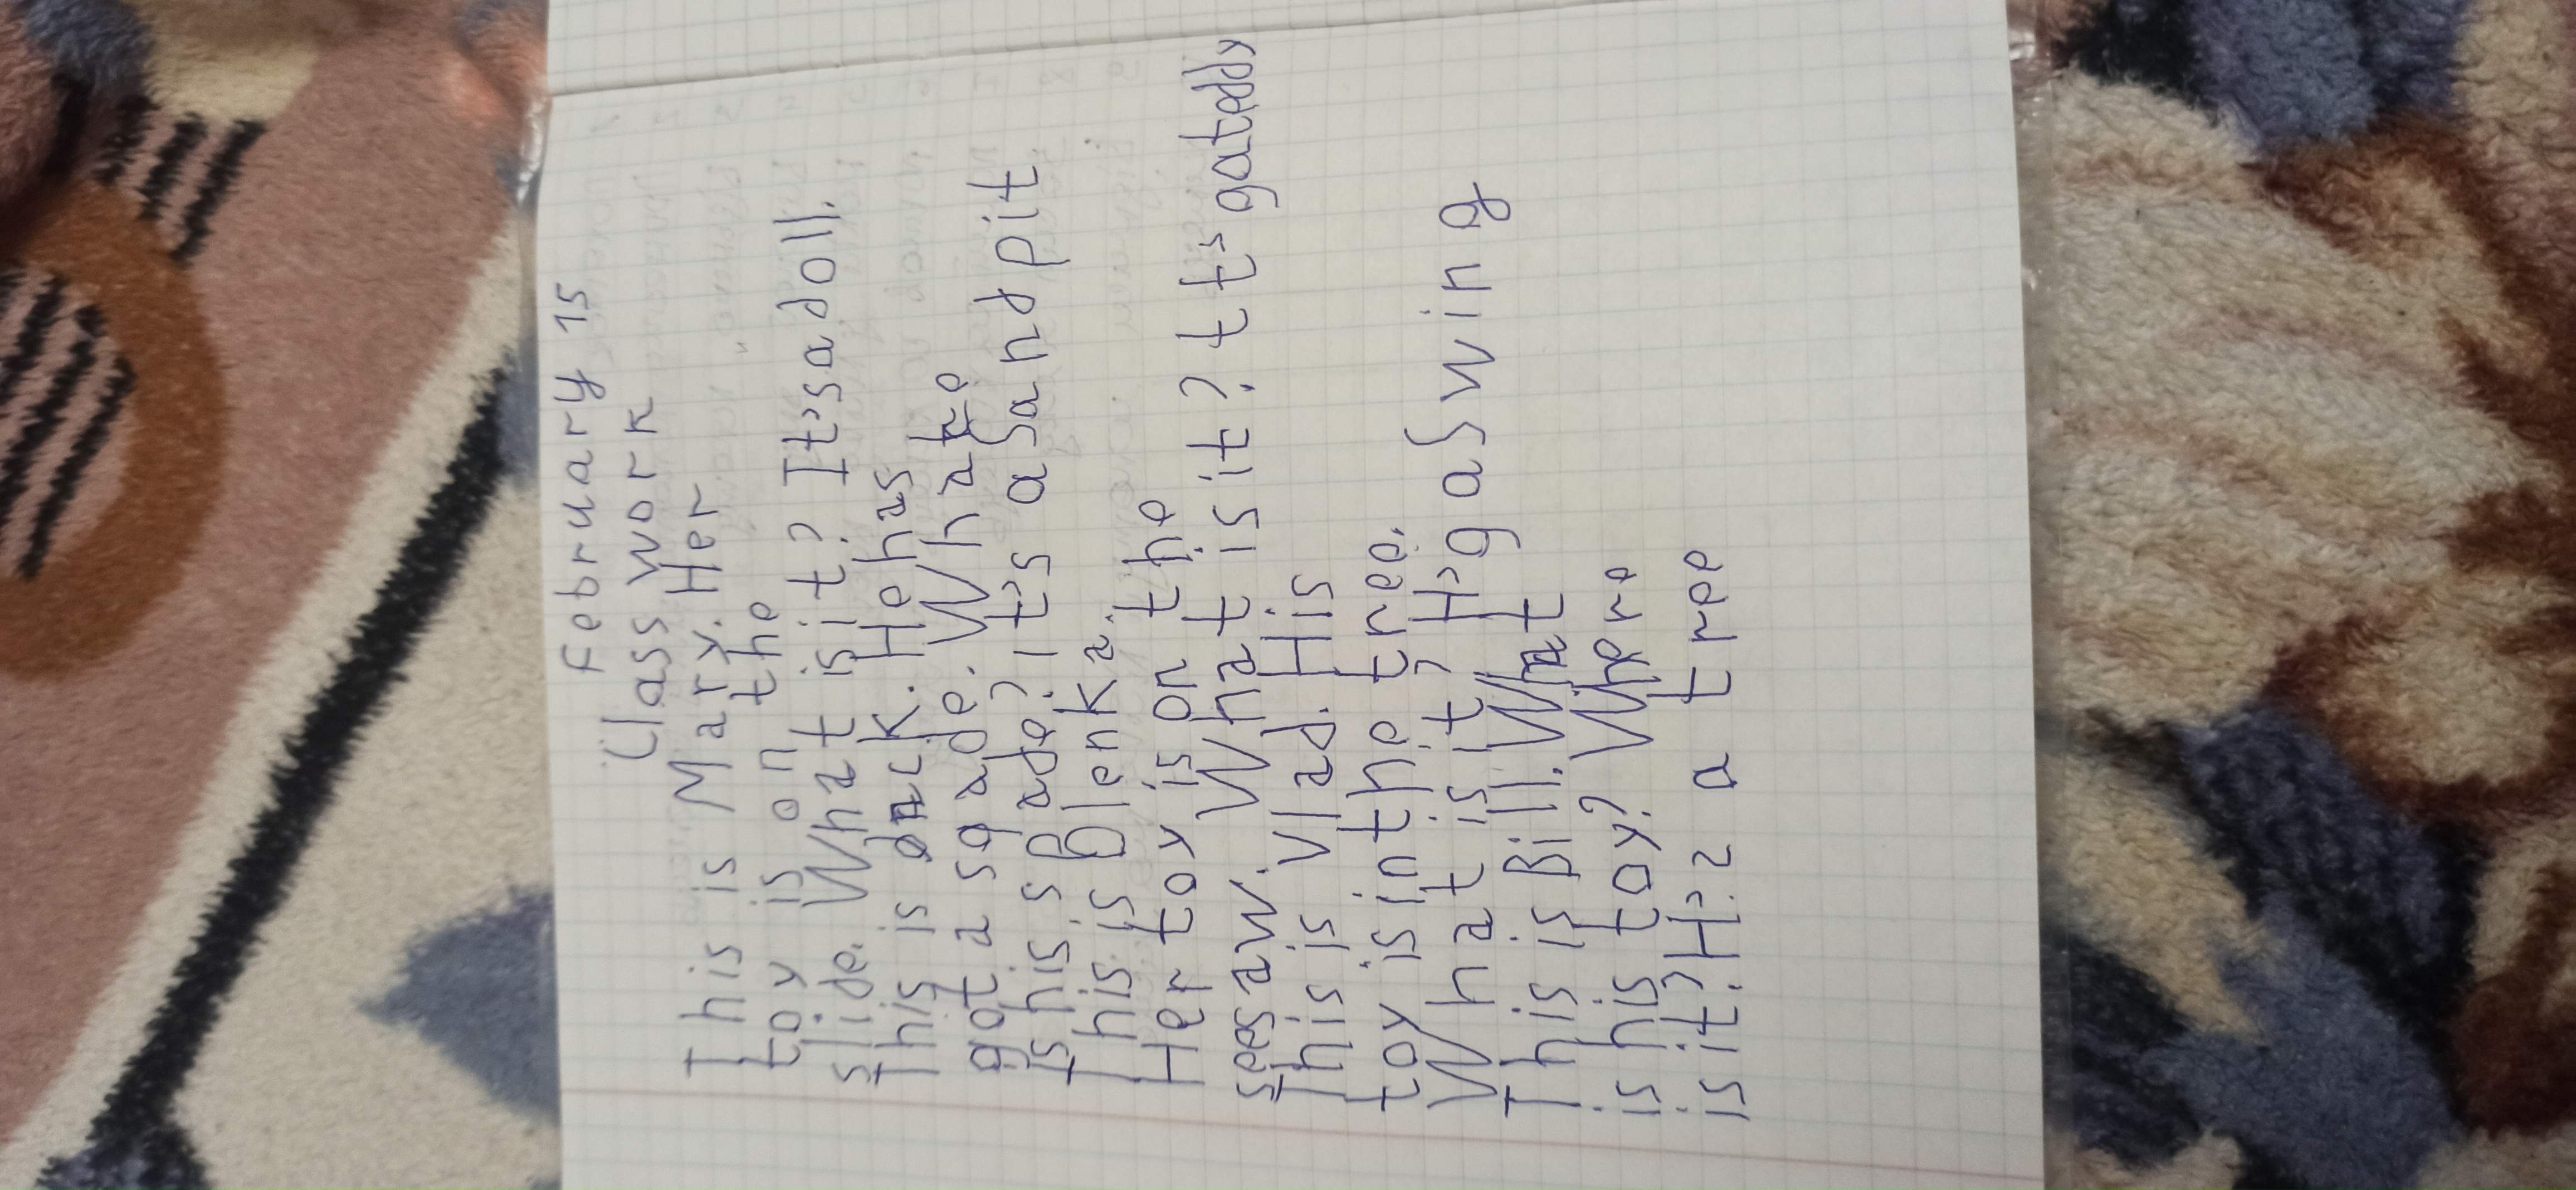 February 15
Class work
This is Mary. Her
toy is on the
slide. What is it? It's a doll.
This is duck. He has
got a sqade. What
is his spade? It's a sand pit
This is Olenka.
Her toy is on the
seesaw. What is it? It's gateddy
This is Vlad. His
toy is in the tree.
What is it? It's gaswing
This is Bill. What
is his toy? Where
is it? It? a tree